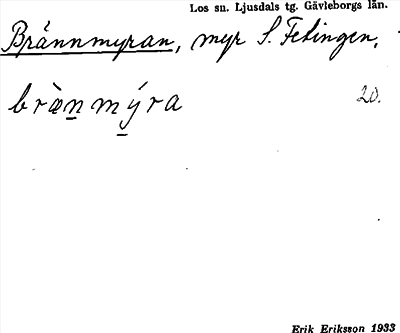 Los sn. Ljusdals tg. Gävleborgs län.
Brännmyran, myr S. Fetingen.
bræ̀n mýra 20.
Erik Eriksson 1933